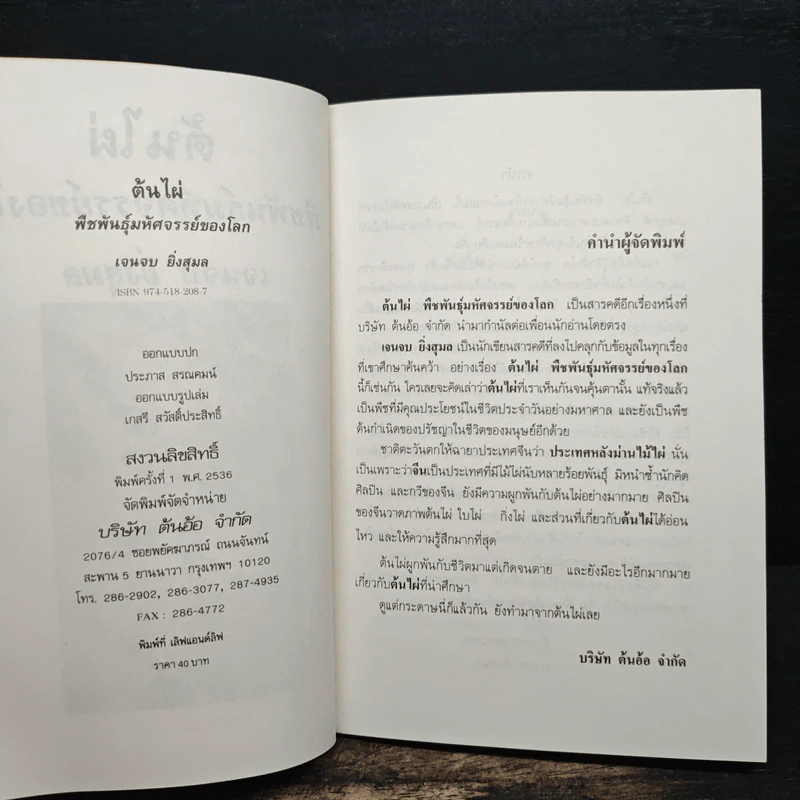 ต้นไผ่
พืชพันธุ์มหัศจรรย์ของโลก
เจนจบ ยิ่งสุมล
ISBN 974-518-208-7
ออกแบบปก
ประภาส สรณคมน์
ออกแบบรูปเล่ม
เกสรี สวัสดิ์ประสิทธิ์
สงวนลิขสิทธิ์
พิมพ์ครั้งที่ 1 พ.ศ. 2536
จัดพิมพ์จัดจำหน่าย
บริษัท ต้นอ้อ จำกัด
2076/4 ซอยพยัคฆาภรณ์ ถนนจันทน์
สะพาน 5 ยานนาวา กรุงเทพฯ 10120
โทร. 286-2902, 286-3077, 287-4935
FAX : 286-4772
พิมพ์ที่ เลิฟแอนด์ลิฟ
ราคา 40 บาท
คำนำผู้จัดพิมพ์
ต้นไผ่ พืชพันธุ์มหัศจรรย์ของโลก เป็นสารคดีอีกเรื่องหนึ่งที่
บริษัท ต้นอ้อ จำกัด นำมากำนัลต่อเพื่อนนักอ่านโดยตรง
เจนจบ ยิ่งสุมล เป็นนักเขียนสารคดีที่ลงไปคลุกกับข้อมูลในทุกเรื่อง
ที่เขาศึกษาค้นคว้า อย่างเรื่อง ต้นไผ่ พืชพันธุ์มหัศจรรย์ของโลก
นี้ก็เช่นกัน ใครเลยจะคิดเล่าว่าต้นไผ่ที่เราเห็นกันจนคุ้นตานั้น แท้จริงแล้ว
เป็นพืชที่มีคุณประโยชน์ในชีวิตประจำวันอย่างมหาศาล และยังเป็นพืช
ต้นกำเนิดของปรัชญาในชีวิตของมนุษย์อีกด้วย
ชาติตะวันตกให้ฉายาประเทศจีนว่า ประเทศหลังม่านไม้ไผ่ นั่น
เป็นเพราะว่าจีนเป็นประเทศที่มีไม้ไผ่นับหลายร้อยพันธุ์ มิหนำซ้ำนักคิด
ศิลปิน และกวีของจีน ยังมีความผูกพันกับต้นไผ่อย่างมากมาย ศิลปิน
ของจีนวาดภาพต้นไผ่ ใบไผ่ กิ่งไผ่ และส่วนที่เกี่ยวกับต้นไผ่ได้อ่อน
ไหว และให้ความรู้สึกมากที่สุด
ต้นไผ่ผูกพันกับชีวิตมาแต่เกิดจนตาย และยังมีอะไรอีกมากมาย
เกี่ยวกับต้นไผ่ที่น่าศึกษา
ดูแต่กระดาษนี่ก็แล้วกัน ยังทำมาจากต้นไผ่เลย
บริษัท ต้นอ้อ จำกัด